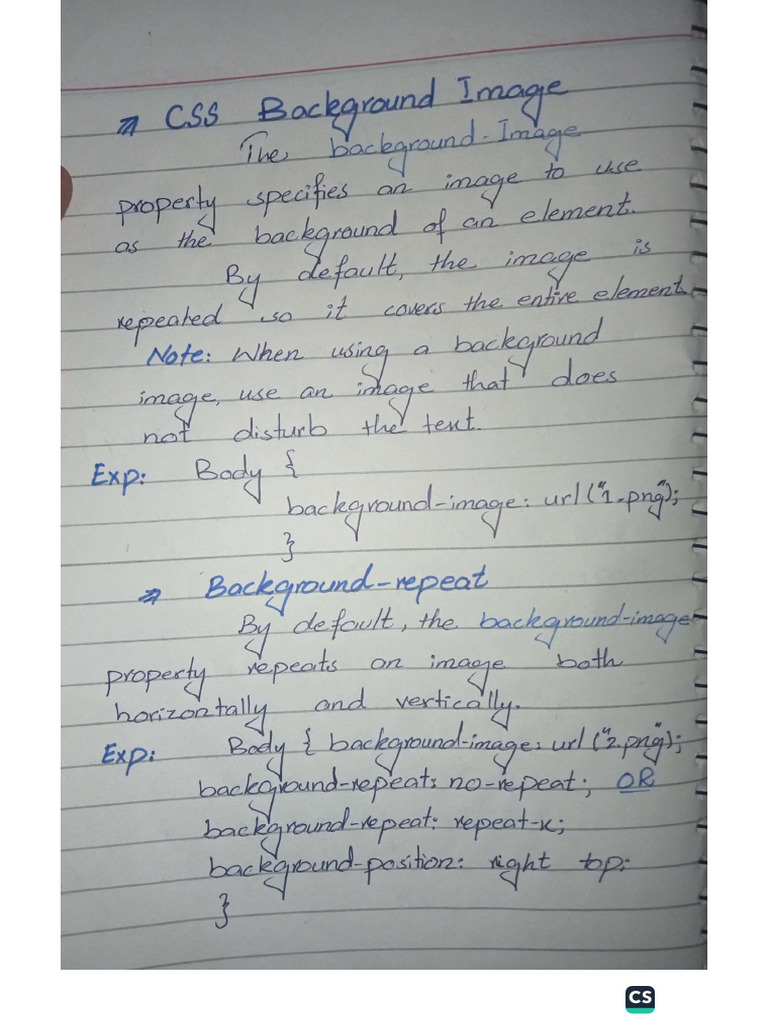 ⇒ CSS Background Image
The background-Image
property specifies an image to use
as the background of an element.
By default, the image is
repeated so it covers the entire element
Note: When using a background
image, use an image that does
not disturb the text.
Exp: Body {
background-image: url("1.png");
}
⇒ Background-repeat
By default, the background-image
property repeats an image both
horizontally and vertically.
Exp: Body { background-image: url("2.png");
background-repeat: no-repeat; OR
background-repeat: repeat-x;
background-position: right top;
}
CS